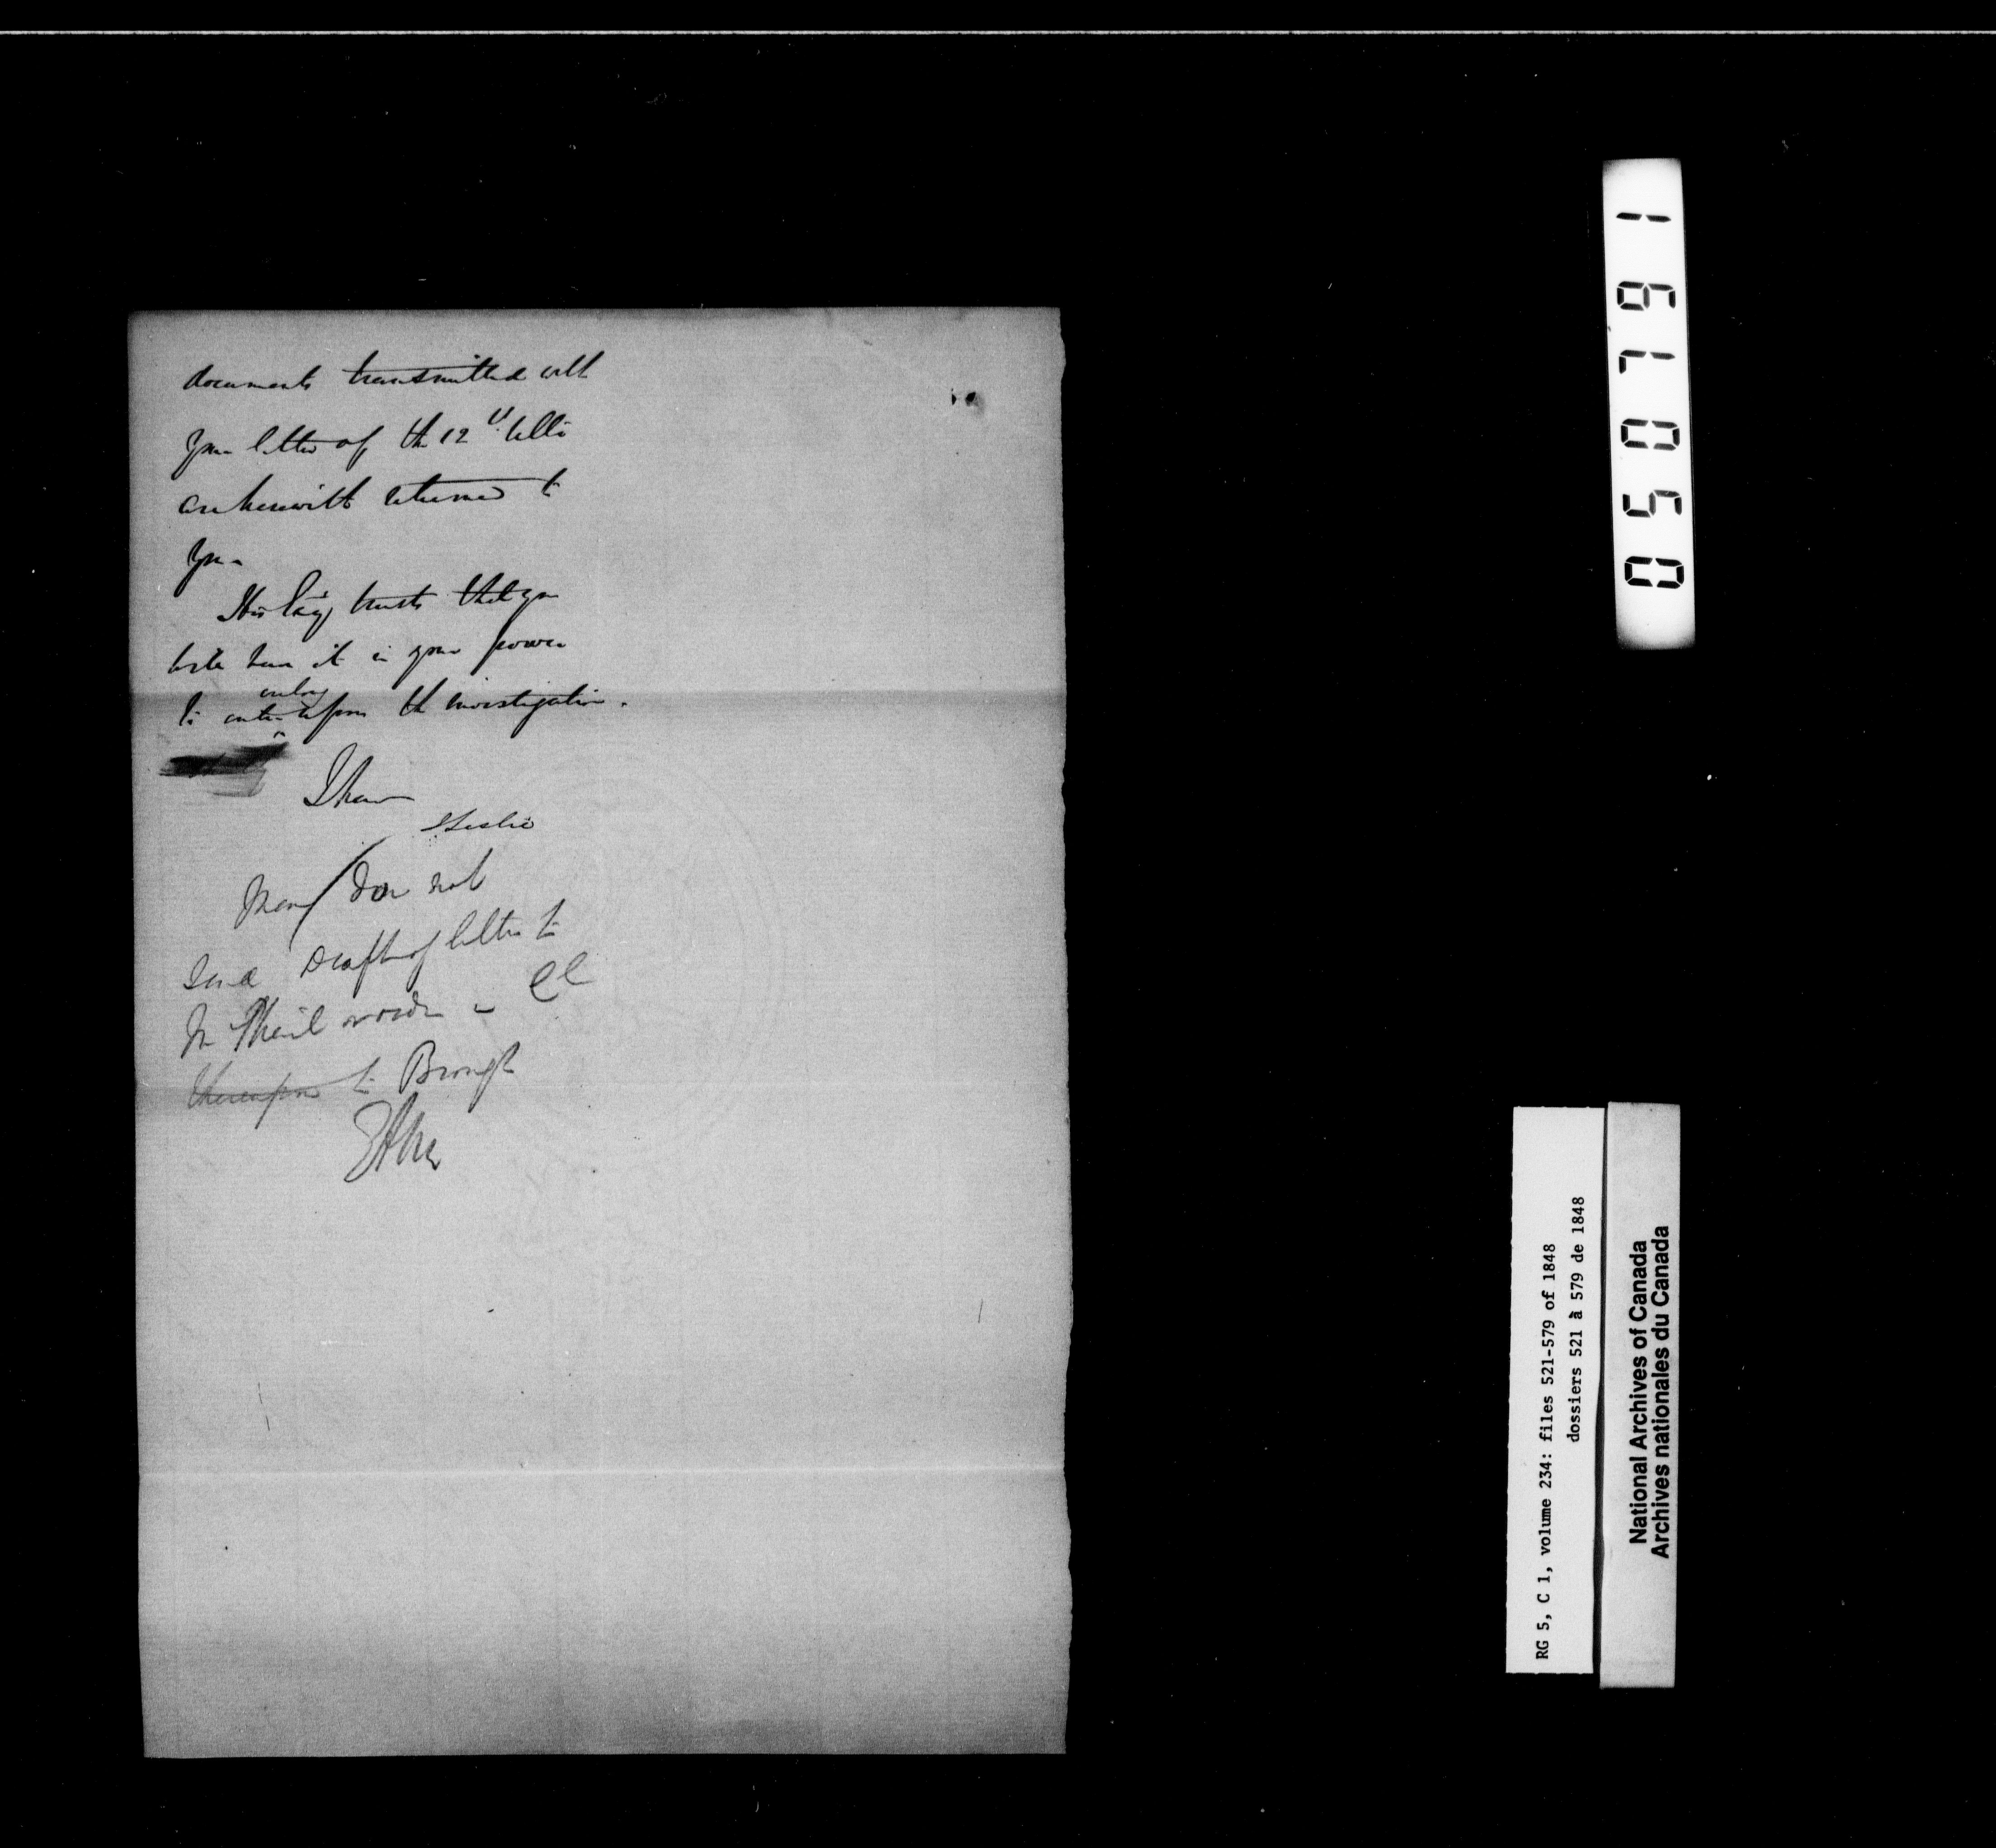 documents transmitted with
your letter of the 12th Ulto
are herewith returned to
you.
His Exc'y trusts that you
will have it in your power
early
to enter upon the investigation.
I have
J Leslie
do not
send Draft of letter to
Mr
thereupon to Brough
016791
050791
RG 5, C 1, volume 234: files 521-579 of 1848
dossiers 521 à 579 de 1848
National Archives of Canada
Archives nationales du Canada